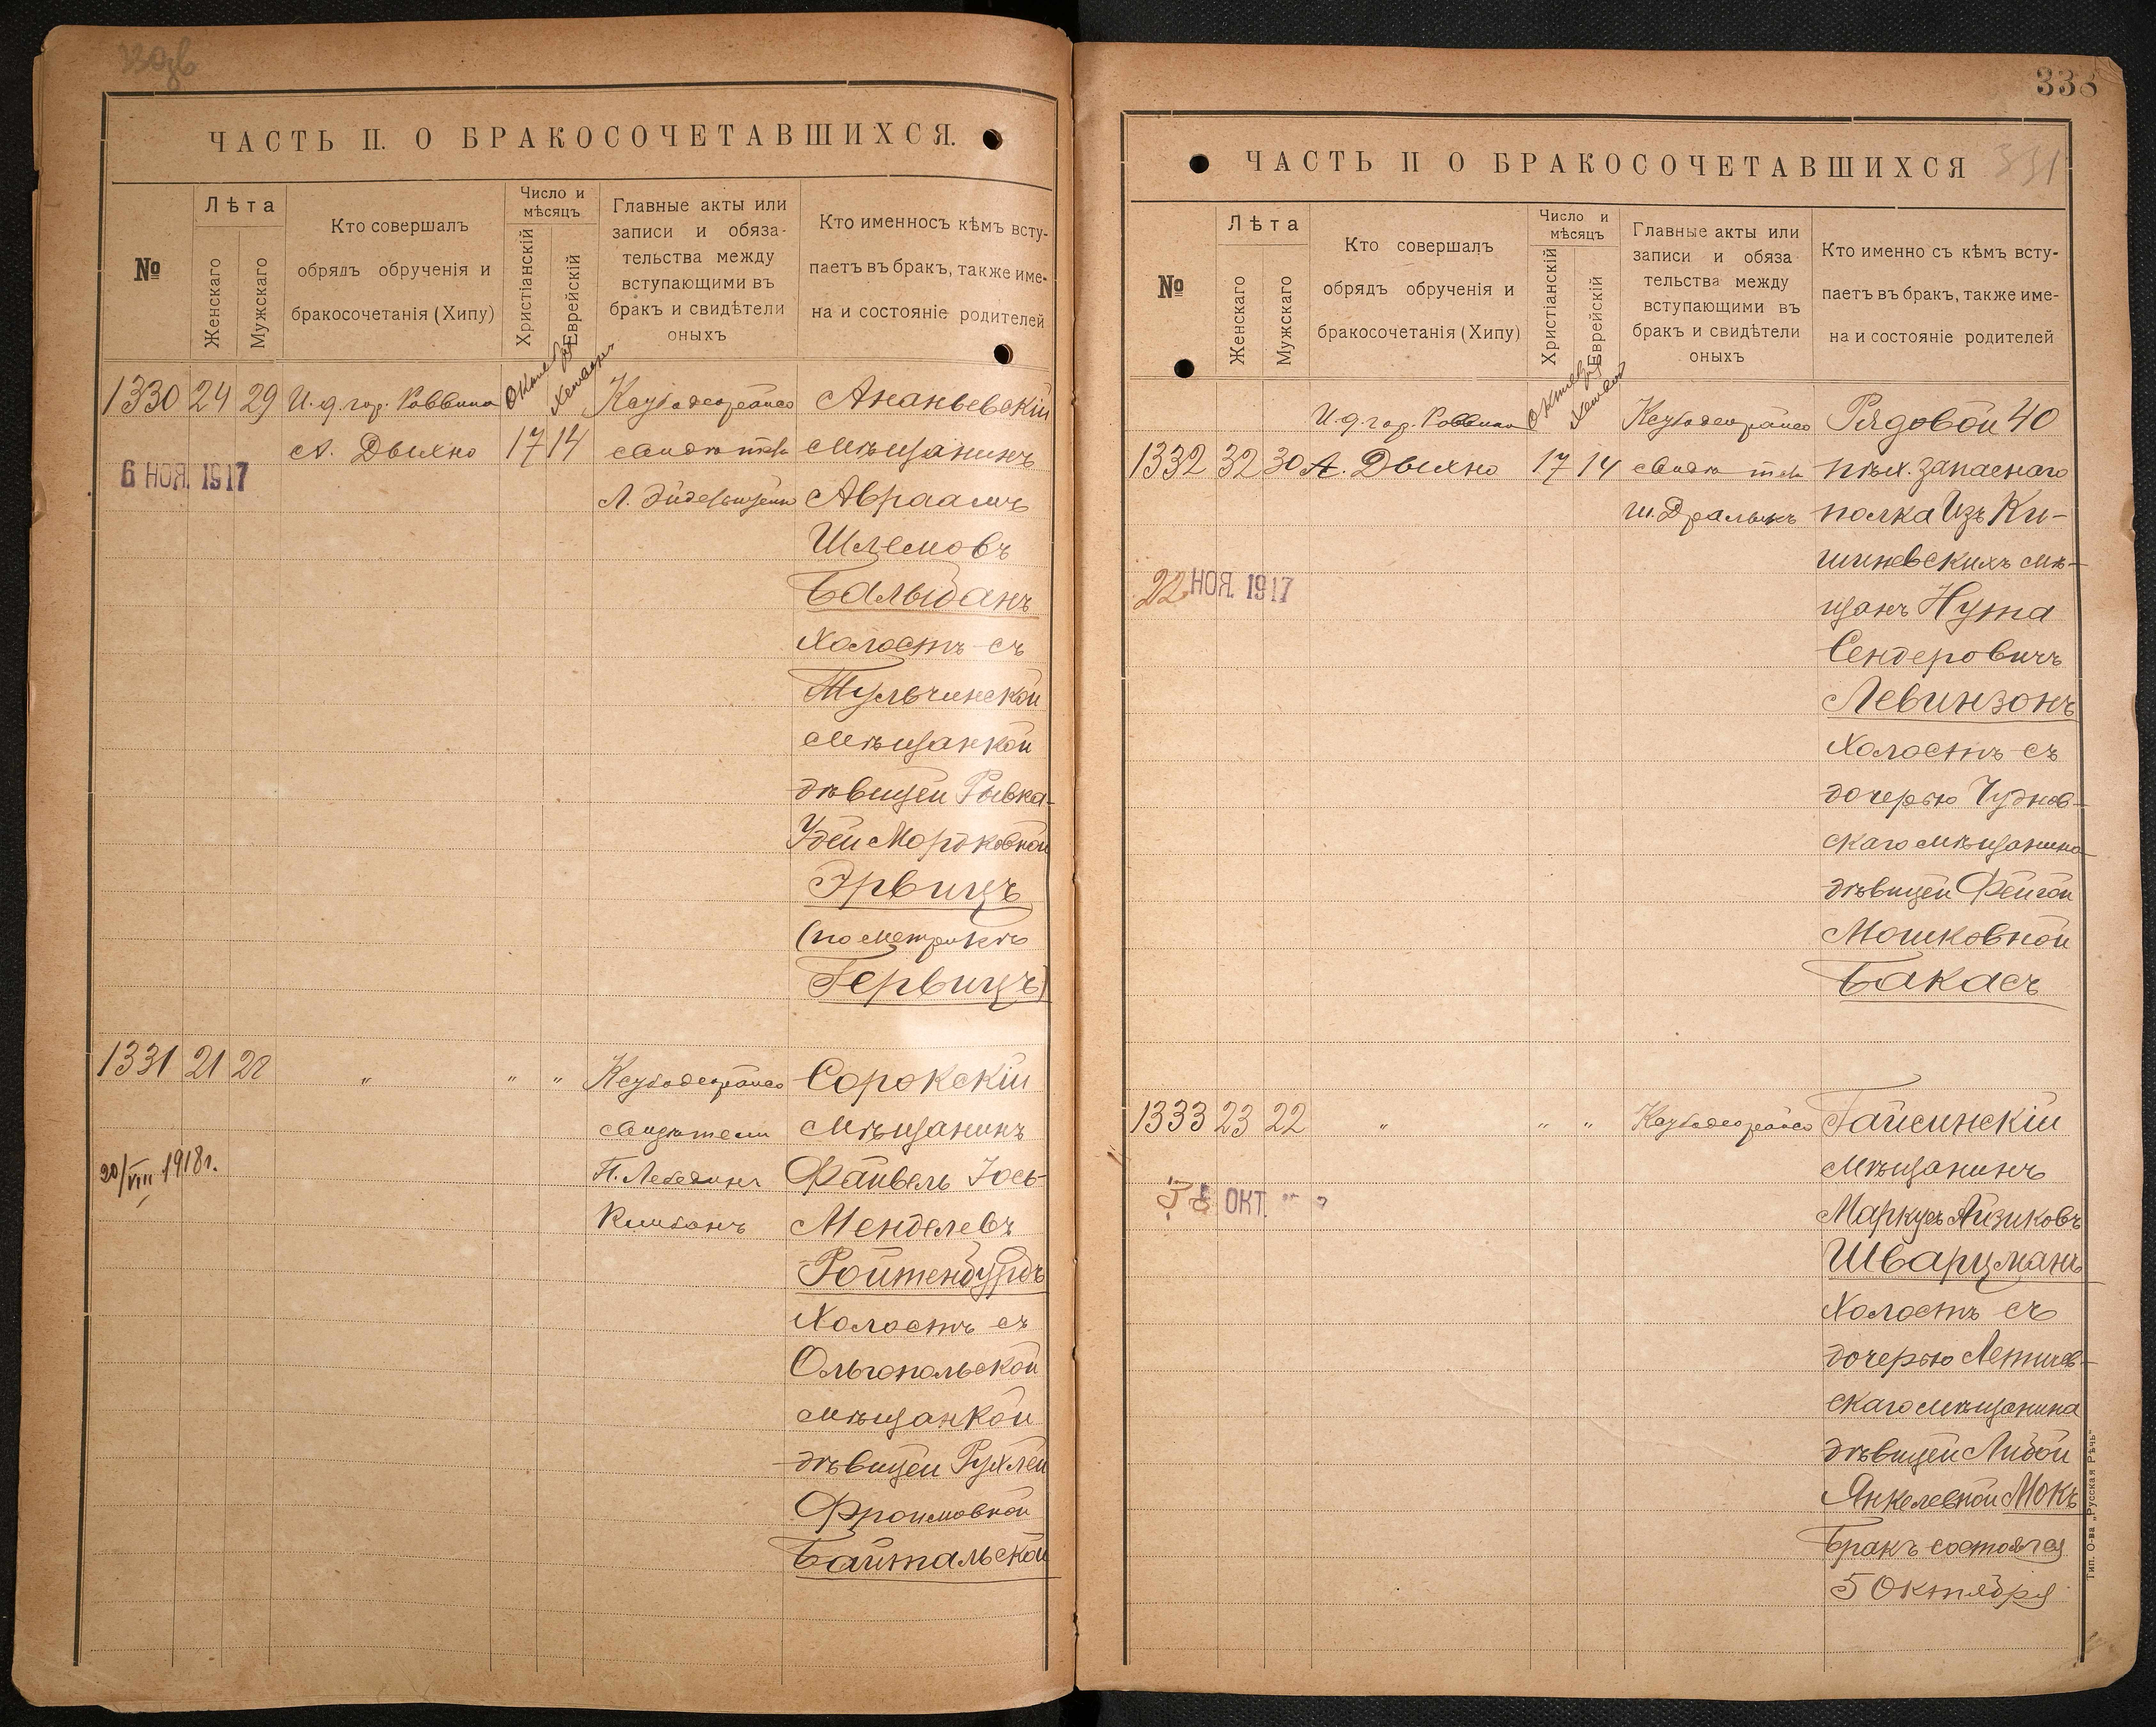 ЧАСТЬ II. О БРАКОСОЧЕТАВШИХСЯ.
№
Лѣта
Женскаго
Мужскаго
Кто совершалъ
обрядъ обрученія и
бракосочетанія (Хипу)
Число и
мѣсяцъ
Христіанскій
Еврейскій
Главные акты или
записи и обяза-
тельства между
вступающими въ
бракъ и свидѣтели
оныхъ
Кто именносъ кѣмъ всту-
паетъ въ бракъ, также име-
на и состояніе родителей
1330 24 29 И. д. гор. Раввина
А. Дыхно
17 14
6 НОЯ. 1917
Ананьевскій
мѣщанинъ
Авраамъ
Шлемовъ
Бальбанъ
Холостъ съ
Тульчинской
мѣщанкой
дѣвицей Рывка-
Удей Мордковной
Эрвицъ
(по метрикѣ
Гервицъ)
1331 21 22 " " "
свидѣтели
20/VIII 1918 г.
Сорокскій
мѣщанинъ
Файвель Іось-
Менделевъ
Ройтенбурдъ
Холостъ съ
Ольгопольской
мѣщанкой
дѣвицей Рухлей
Фроимовной
Байтальской
338
331
ЧАСТЬ II О БРАКОСОЧЕТАВШИХСЯ
№
Лѣта
Женскаго
Мужскаго
Кто совершалъ
обрядъ обрученія и
бракосочетанія (Хипу)
Число и
мѣсяцъ
Христіанскій
Еврейскій
Главные акты или
записи и обяза
тельства между
вступающими въ
бракъ и свидѣтели
оныхъ
Кто именно съ кѣмъ всту-
паетъ въ бракъ, также име-
на и состояніе родителей
И. д. гор. Раввина
1332 32 30 А. Дыхно 17 14
22 НОЯ. 1917
Рядовой 40
пѣх. запаснаго
полка Изъ Ки-
шиневскихъ мѣ-
щанъ Нута
Сендеровичъ
Левинзонъ
Холостъ съ
дочерью Чуднов-
скаго мѣщанина
дѣвицей Фейгой
Мошковной
Бакасъ
1333 23 22 " " "
ОКТ.
Гайсинскій
мѣщанинъ
Маркусъ Айзиковъ
Шварцманъ
Холостъ съ
дочерью Летичев-
скаго мѣщанина
дѣвицей Либой
Янкелевной Мокъ
Бракъ состоялся
5 Октября
Тип. О-ва „Русская Рѣчь"